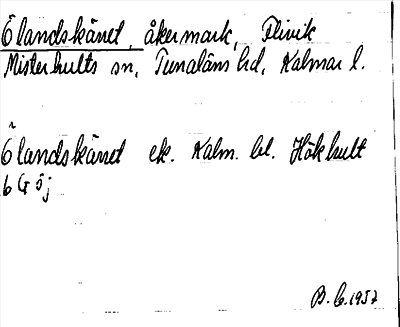 Ölandskärret, åkermark, Flivik
Misterhults sn, Tunaläns hd, Kalmar l.
Ölandskärret ek. Kalm. bl. Hökhult
6 G 5 j
B. C. 1957